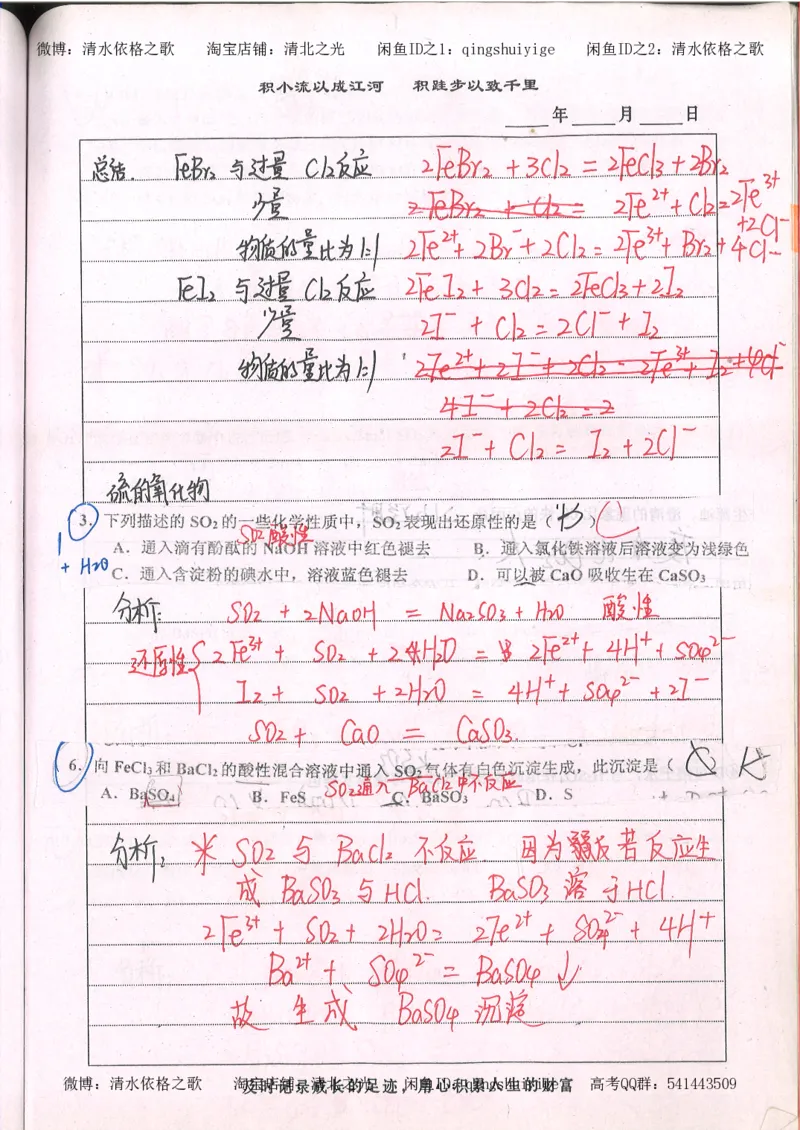 微博：清水依格之歌 淘宝店铺：清北之光 闲鱼ID之1：qingshuiyige 闲鱼ID之2：清水依格之歌
积小流以成江河 积跬步以致千里
年 月 日
总结. FeBr₂ 与过量 Cl₂反应 2FeBr₂ + 3Cl₂ = 2FeCl₃ + 2Br₂
少量 2FeBr₂ + Cl₂ = 2Fe²⁺ + Cl₂ = 2Fe³⁺ + 2Cl⁻
物质的量比为1:1 2Fe²⁺ + 2Br⁻ + 2Cl₂ = 2Fe³⁺ + Br₂ + 4Cl⁻
FeI₂ 与过量 Cl₂反应 2FeI₂ + 3Cl₂ = 2FeCl₃ + 2I₂
少量 2I⁻ + Cl₂ = 2Cl⁻ + I₂
物质的量比为1:1 2Fe²⁺ + 2I⁻ + 2Cl₂ = 2Fe³⁺ + I₂ + 4Cl⁻
4I⁻ + 2Cl₂ = 2
2I⁻ + Cl₂ = I₂ + 2Cl⁻
硫的氧化物
3. 下列描述的 SO₂ 的一些化学性质中，SO₂ 表现出还原性的是（ B ） C
SO₂酸性
A．通入滴有酚酞的 NaOH 溶液中红色褪去 B．通入氯化铁溶液后溶液变为浅绿色
+ H₂O
C．通入含淀粉的碘水中，溶液蓝色褪去 D．可以被 CaO 吸收生在 CaSO₃
分析: SO₂ + 2NaOH = Na₂SO₃ + H₂O 酸性
还原性 2Fe³⁺ + SO₂ + 2H₂O = 2Fe²⁺ + 4H⁺ + SO₄²⁻
I₂ + SO₂ + 2H₂O = 4H⁺ + SO₄²⁻ + 2I⁻
SO₂ + CaO = CaSO₃.
6. 向 FeCl₃ 和 BaCl₂ 的酸性混合溶液中通入 SO₂ 气体有白色沉淀生成，此沉淀是（ A
SO₂通入 BaCl₂中不反应
A．BaSO₄ B．FeS C．BaSO₃ D．S
分析: ※ SO₂ 与 BaCl₂ 不反应 因为 若反应生
成 BaSO₃ 与 HCl. BaSO₃ 溶于 HCl.
2Fe³⁺ + SO₂ + 2H₂O = 2Fe²⁺ + SO₄²⁻ + 4H⁺
Ba²⁺ + SO₄²⁻ = BaSO₄ ↓
故 生成 BaSO₄ 沉淀
及时记录成长的足迹，用心积累人生的财富
微博：清水依格之歌 淘宝店铺：清北之光 闲鱼ID：qingshuiyige 高考QQ群：541443509